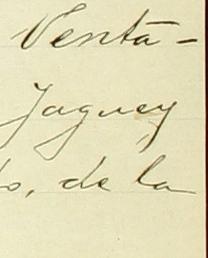 Venta-
Jaguey
to, de la